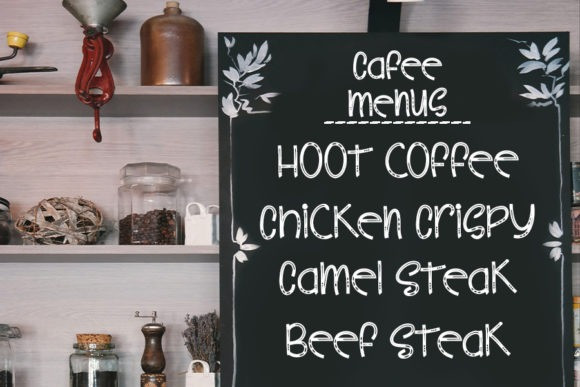 Cafee
Menus
HOOT COFFEE
Chicken Crispy
Camel Steak
Beef Steak